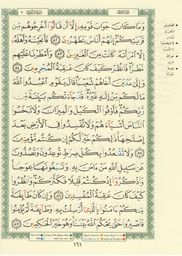 وَمَا كَانَ جَوَابَ قَوْمِهِۦٓ إِلَّآ أَن قَالُوٓا۟ أَخْرِجُوهُم مِّن
قَرْيَتِكُمْ إِنَّهُمْ أُنَاسٌ يَتَطَهَّرُونَ ٨٢ فَأَنجَيْنَٰهُ وَأَهْلَهُۥٓ
إِلَّا ٱمْرَأَتَهُۥ كَانَتْ مِنَ ٱلْغَٰبِرِينَ ٨٣ وَأَمْطَرْنَا عَلَيْهِم
مَّطَرًا فَٱنظُرْ كَيْفَ كَانَ عَٰقِبَةُ ٱلْمُجْرِمِينَ ٨٤
وَإِلَىٰ مَدْيَنَ أَخَاهُمْ شُعَيْبًا قَالَ يَٰقَوْمِ ٱعْبُدُوا۟ ٱللَّهَ مَا لَكُم
مِّنْ إِلَٰهٍ غَيْرُهُۥ قَدْ جَآءَتْكُم بَيِّنَةٌ مِّن رَّبِّكُمْ
فَأَوْفُوا۟ ٱلْكَيْلَ وَٱلْمِيزَانَ وَلَا تَبْخَسُوا۟
ٱلنَّاسَ أَشْيَآءَهُمْ وَلَا تُفْسِدُوا۟ فِى ٱلْأَرْضِ بَعْدَ
إِصْلَٰحِهَا ذَٰلِكُمْ خَيْرٌ لَّكُمْ إِن كُنتُم مُّؤْمِنِينَ ٨٥
وَلَا تَقْعُدُوا۟ بِكُلِّ صِرَٰطٍ تُوعِدُونَ وَتَصُدُّونَ
عَن سَبِيلِ ٱللَّهِ مَنْ ءَامَنَ بِهِۦ وَتَبْغُونَهَا عِوَجًا
وَٱذْكُرُوٓا۟ إِذْ كُنتُمْ قَلِيلًا فَكَثَّرَكُمْ وَٱنظُرُوا۟
كَيْفَ كَانَ عَٰقِبَةُ ٱلْمُفْسِدِينَ ٨٦ وَإِن كَانَ طَآئِفَةٌ
مِّنكُمْ ءَامَنُوا۟ بِٱلَّذِىٓ أُرْسِلْتُ بِهِۦ وَطَآئِفَةٌ لَّمْ يُؤْمِنُوا۟
فَٱصْبِرُوا۟ حَتَّىٰ يَحْكُمَ ٱللَّهُ بَيْنَنَا وَهُوَ خَيْرُ ٱلْحَٰكِمِينَ ٨٧
١٦١